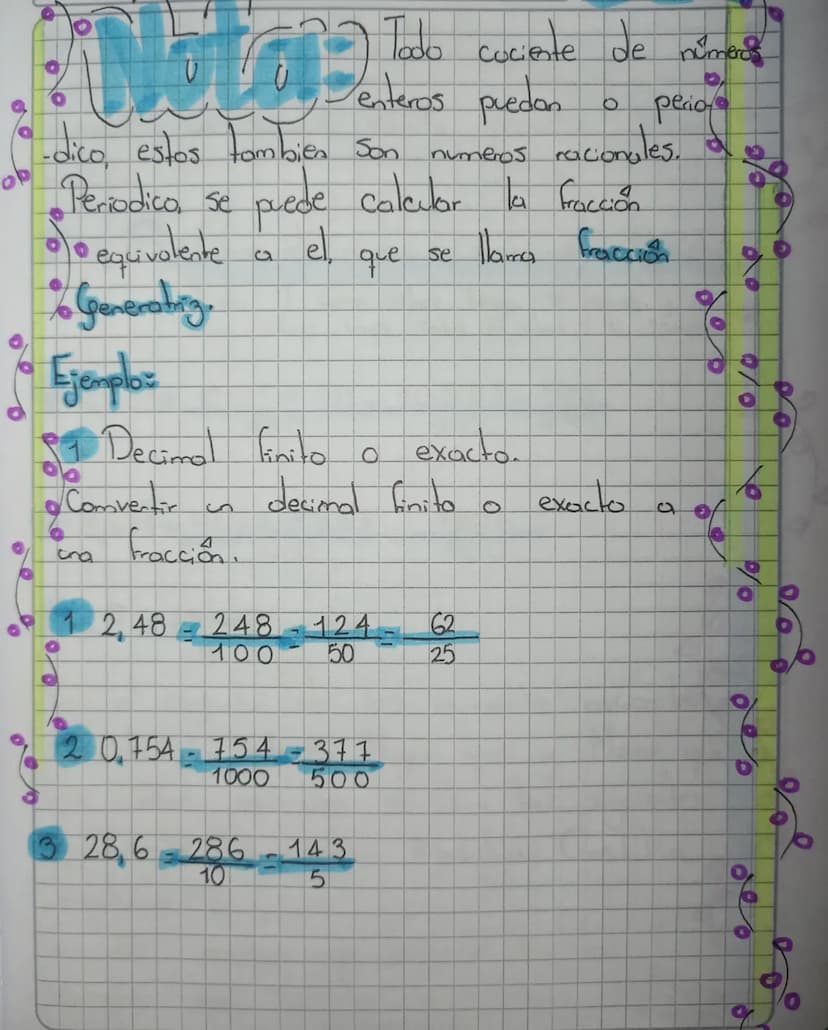 Nota: Todo cociente de números
enteros puedan o perio
-dico, estos tambien son numeros racionales.
Periodico, se puede calcular la fracción
equivalente a el, que se llama fracción
Generatriz.
Ejemplo:
1 Decimal finito o exacto.
Comvertir un decimal finito o exacto a
una fracción.
1 2,48 = 248/100 = 124/50 = 62/25
2 0,754 = 754/1000 = 377/500
3 28,6 = 286/10 = 143/5